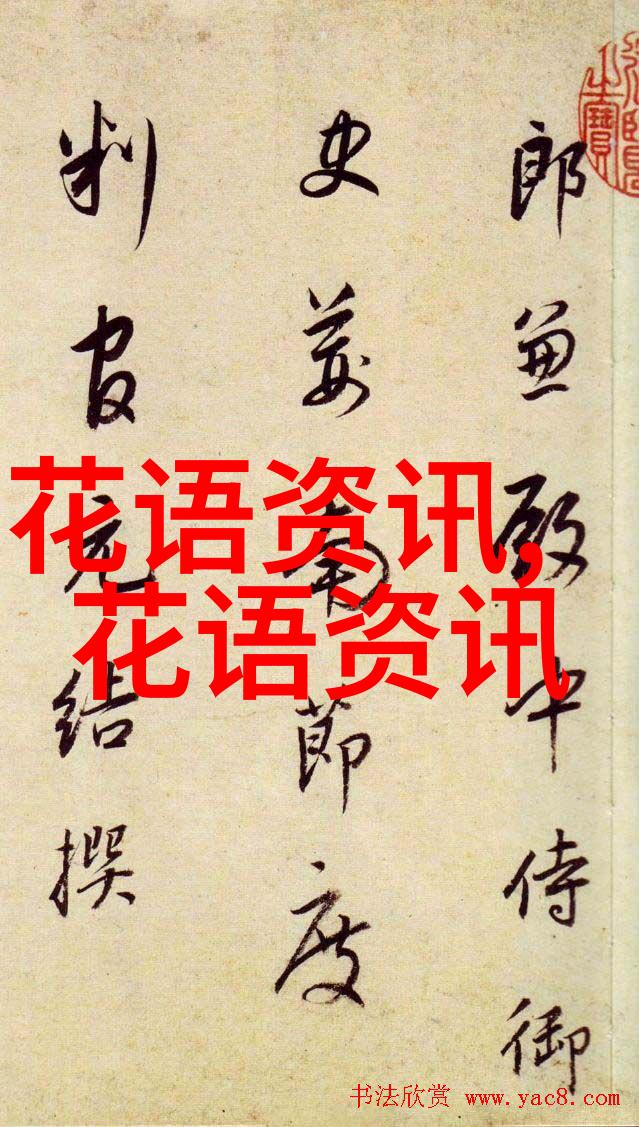 郎兼殿中侍御
史荊南節度
判官元結撰
花语资讯,
花语资讯
书法欣赏 www.yac8.com